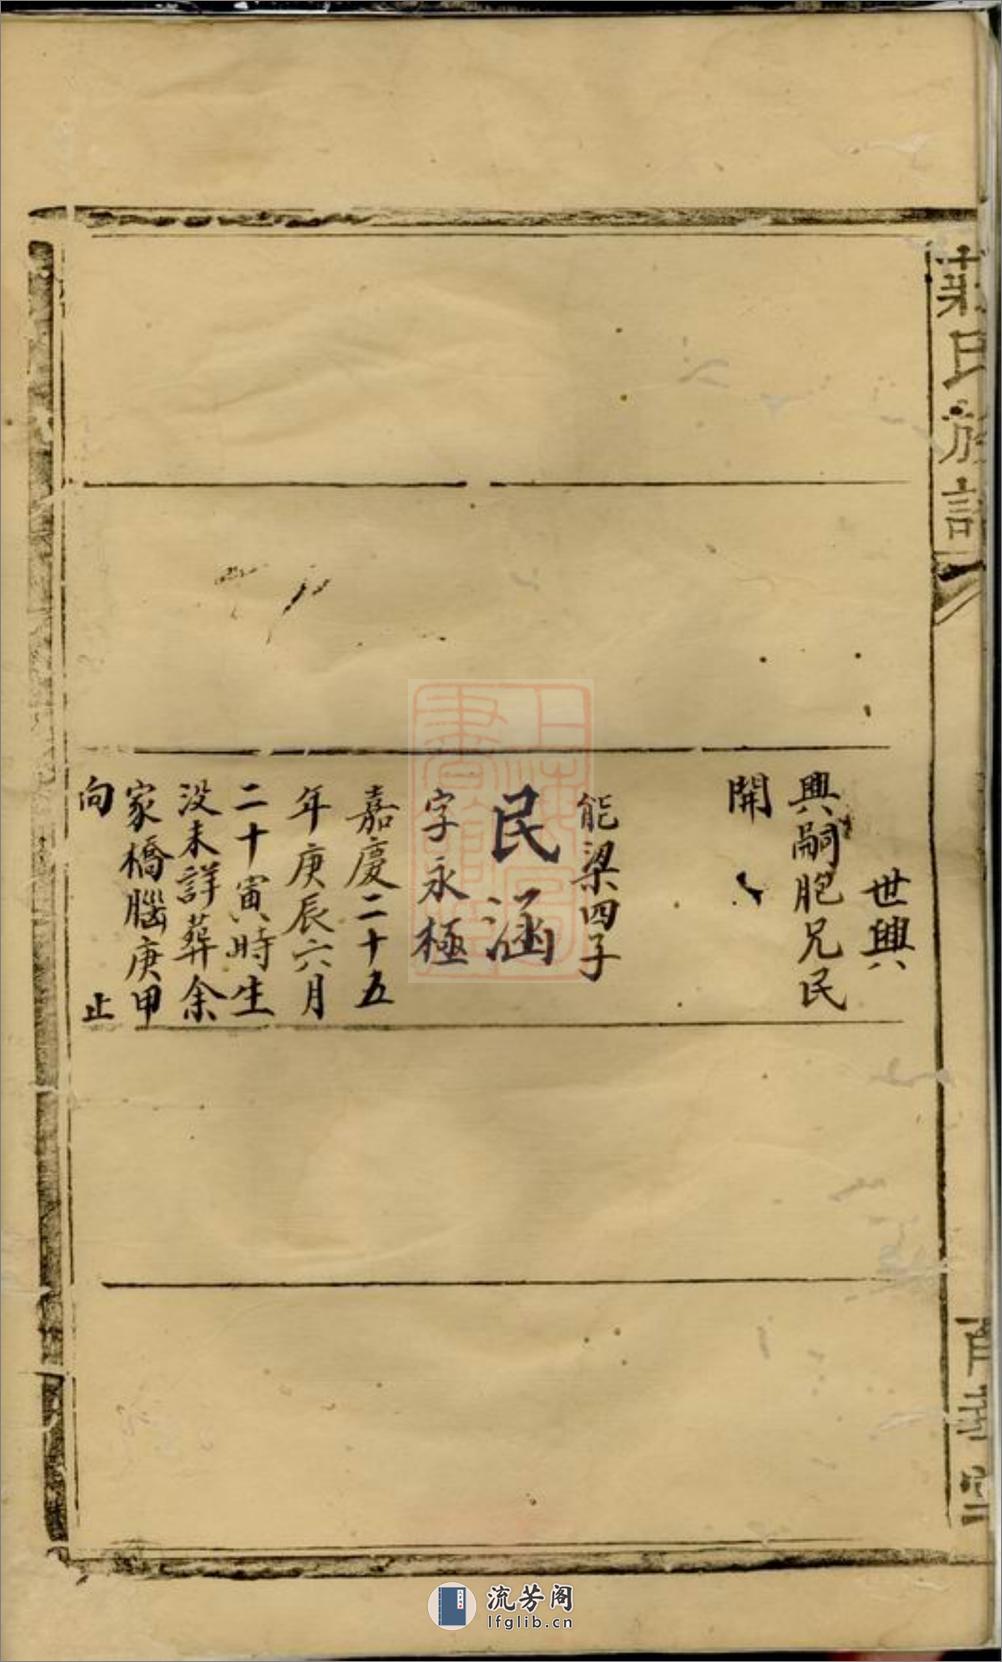 莊氏族譜
世興
興嗣胞兄民
開
能梁四子
民涵
字永極
嘉慶二十五
年庚辰六月
二十寅時生
没未詳葬余
家橋腦庚甲
向 止
上海圖書館藏
流芳阁
lfglib.cn